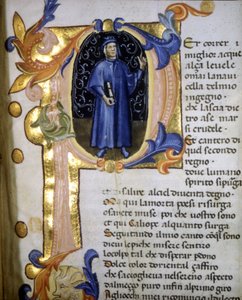 PEr correr
miglior acque
alça leuele
omai lanaui
cella delmio
ingegno
che lascia die
tro ase mar
si crudele
Et cantero di
quel secondo
regno
doue lumano
spirito sipurga
et disalire alciel diuenta degno
Ma qui lamorta poesi risurga
o sancte muse poi che uostro sono
et qui Caliope alquanto surga
Seguitando ilmio canto cōql sono
di cui lepiche misere sentiro
locolpo tal che disperar
Dolce color doriental çaffiro
che saccoglieua nelsereno aspecto
dalmeço puro infin alprimo giro
Agliocchi miei ricomincio